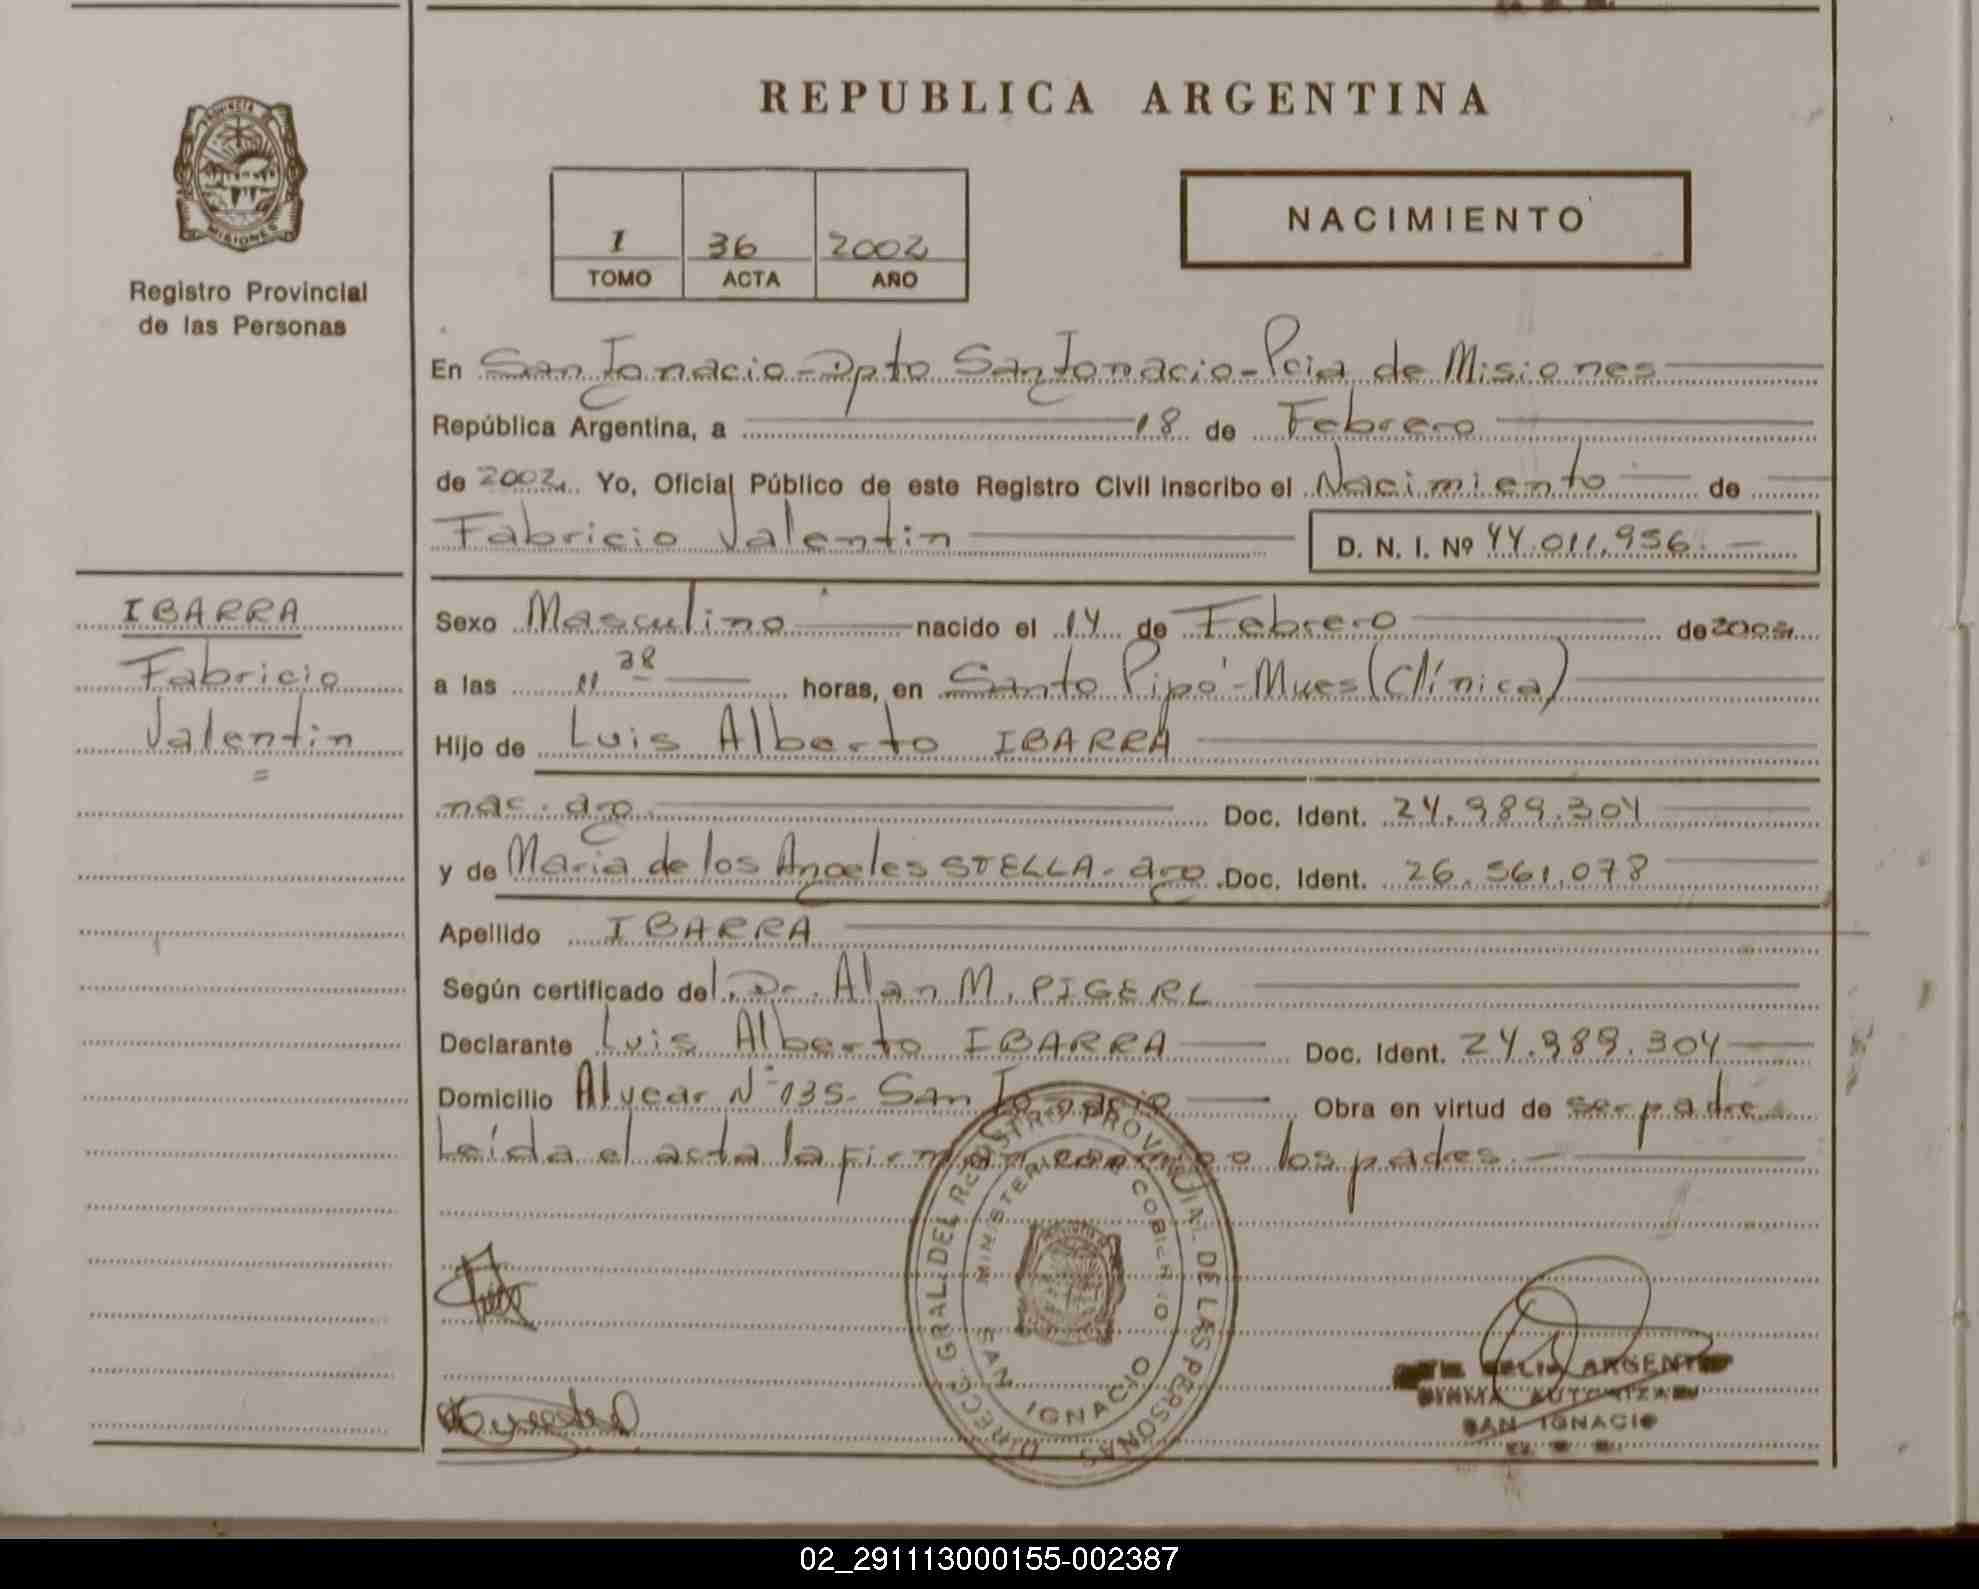 REPUBLICA ARGENTINA
PROVINCIA
MISIONES
Registro Provincial
de las Personas
1 36 2002
TOMO ACTA AÑO
NACIMIENTO
En San Ignacio - Dpto San Ignacio - Pcia de Misiones
República Argentina, a 18 de Febrero
de 2002. Yo, Oficial Público de este Registro Civil inscribo el Nacimiento de
Fabricio Valentin D. N. I. Nº 44.011.956.-
IBARRA
Fabricio
Valentin
=
Sexo Masculino nacido el 14 de Febrero de 2002
a las 11 38 horas, en Santo Pipó - Mnes (Clínica)
Hijo de Luis Alberto IBARRA
nac. arg. Doc. Ident. 24.989.304
y de Maria de los Angeles STELLA - arg. Doc. Ident. 26.561.078
Apellido IBARRA
Según certificado del Dr. Alan M. PIGERL
Declarante Luis Alberto IBARRA Doc. Ident. 24.989.304
Domicilio Alvear Nº 135 - San Ignacio Obra en virtud de ser padre
Leída el acta la firman conmigo los padres.-
DIRECC. GRAL. DEL REGISTRO PROVINCIAL DE LAS PERSONAS
MINISTERIO DE GOBIERNO
SAN IGNACIO
ARGENTI
FIRMA AUTORIZADA
SAN IGNACIO
02_291113000155-002387